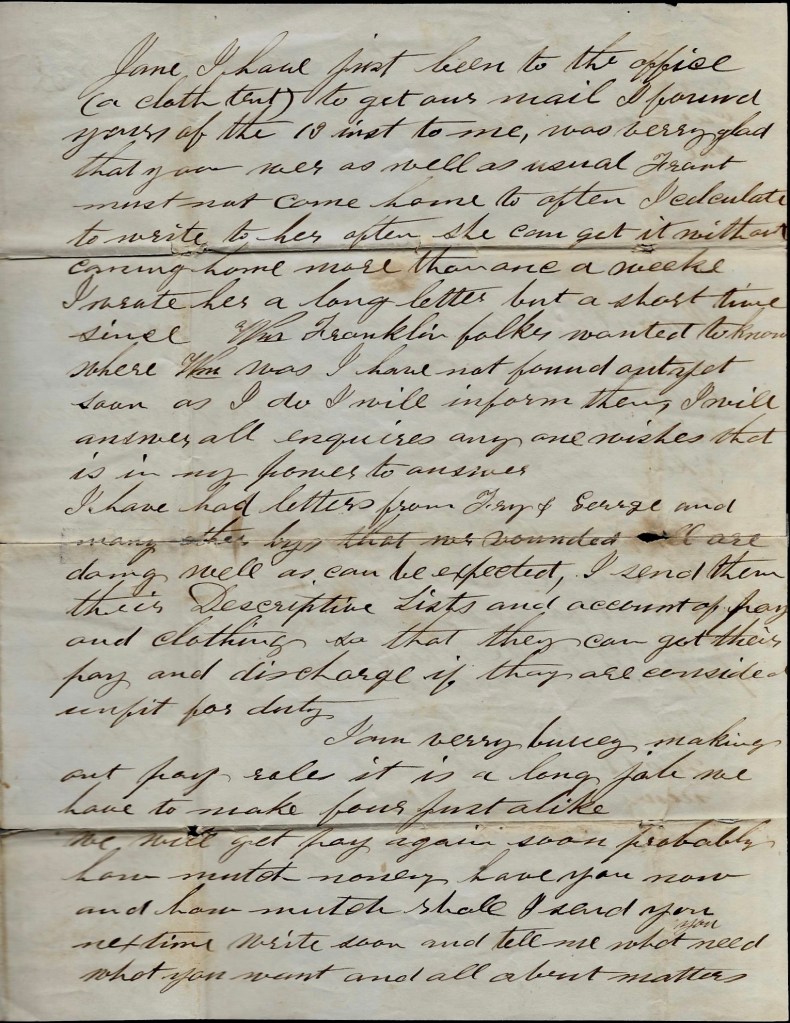 Jane I have just been to the office
(a cloth tent) to get our mail I found
yours of the 13 inst to me, was verry glad
that you wer as well as usual Frant
must not come home to often I calculate
to write to her often she can get it without
coming home more than one a weeke
I wrate her a long letter but a short time
since Wm Franklin folks wanted to know
where Wm was I have not found out yet
soon as I do I will inform them, I will
answer all enquires any one wishes that
is in my power to answer
I have had letters from & George and
many other bys that wer wounded all are
doing well as can be expected, I send them
their Descriptive Lists and account of pay
and clothing so that they can get their
pay and discharge if they are consided
unfit for duty
I am verry buisey making
out pay roles it is a long job we
have to make four just alike
we will get pay again soon probably
how mutch money have you now
and how mutch shall I send you
next time write soon and tell me what you need
what you want and all about matters